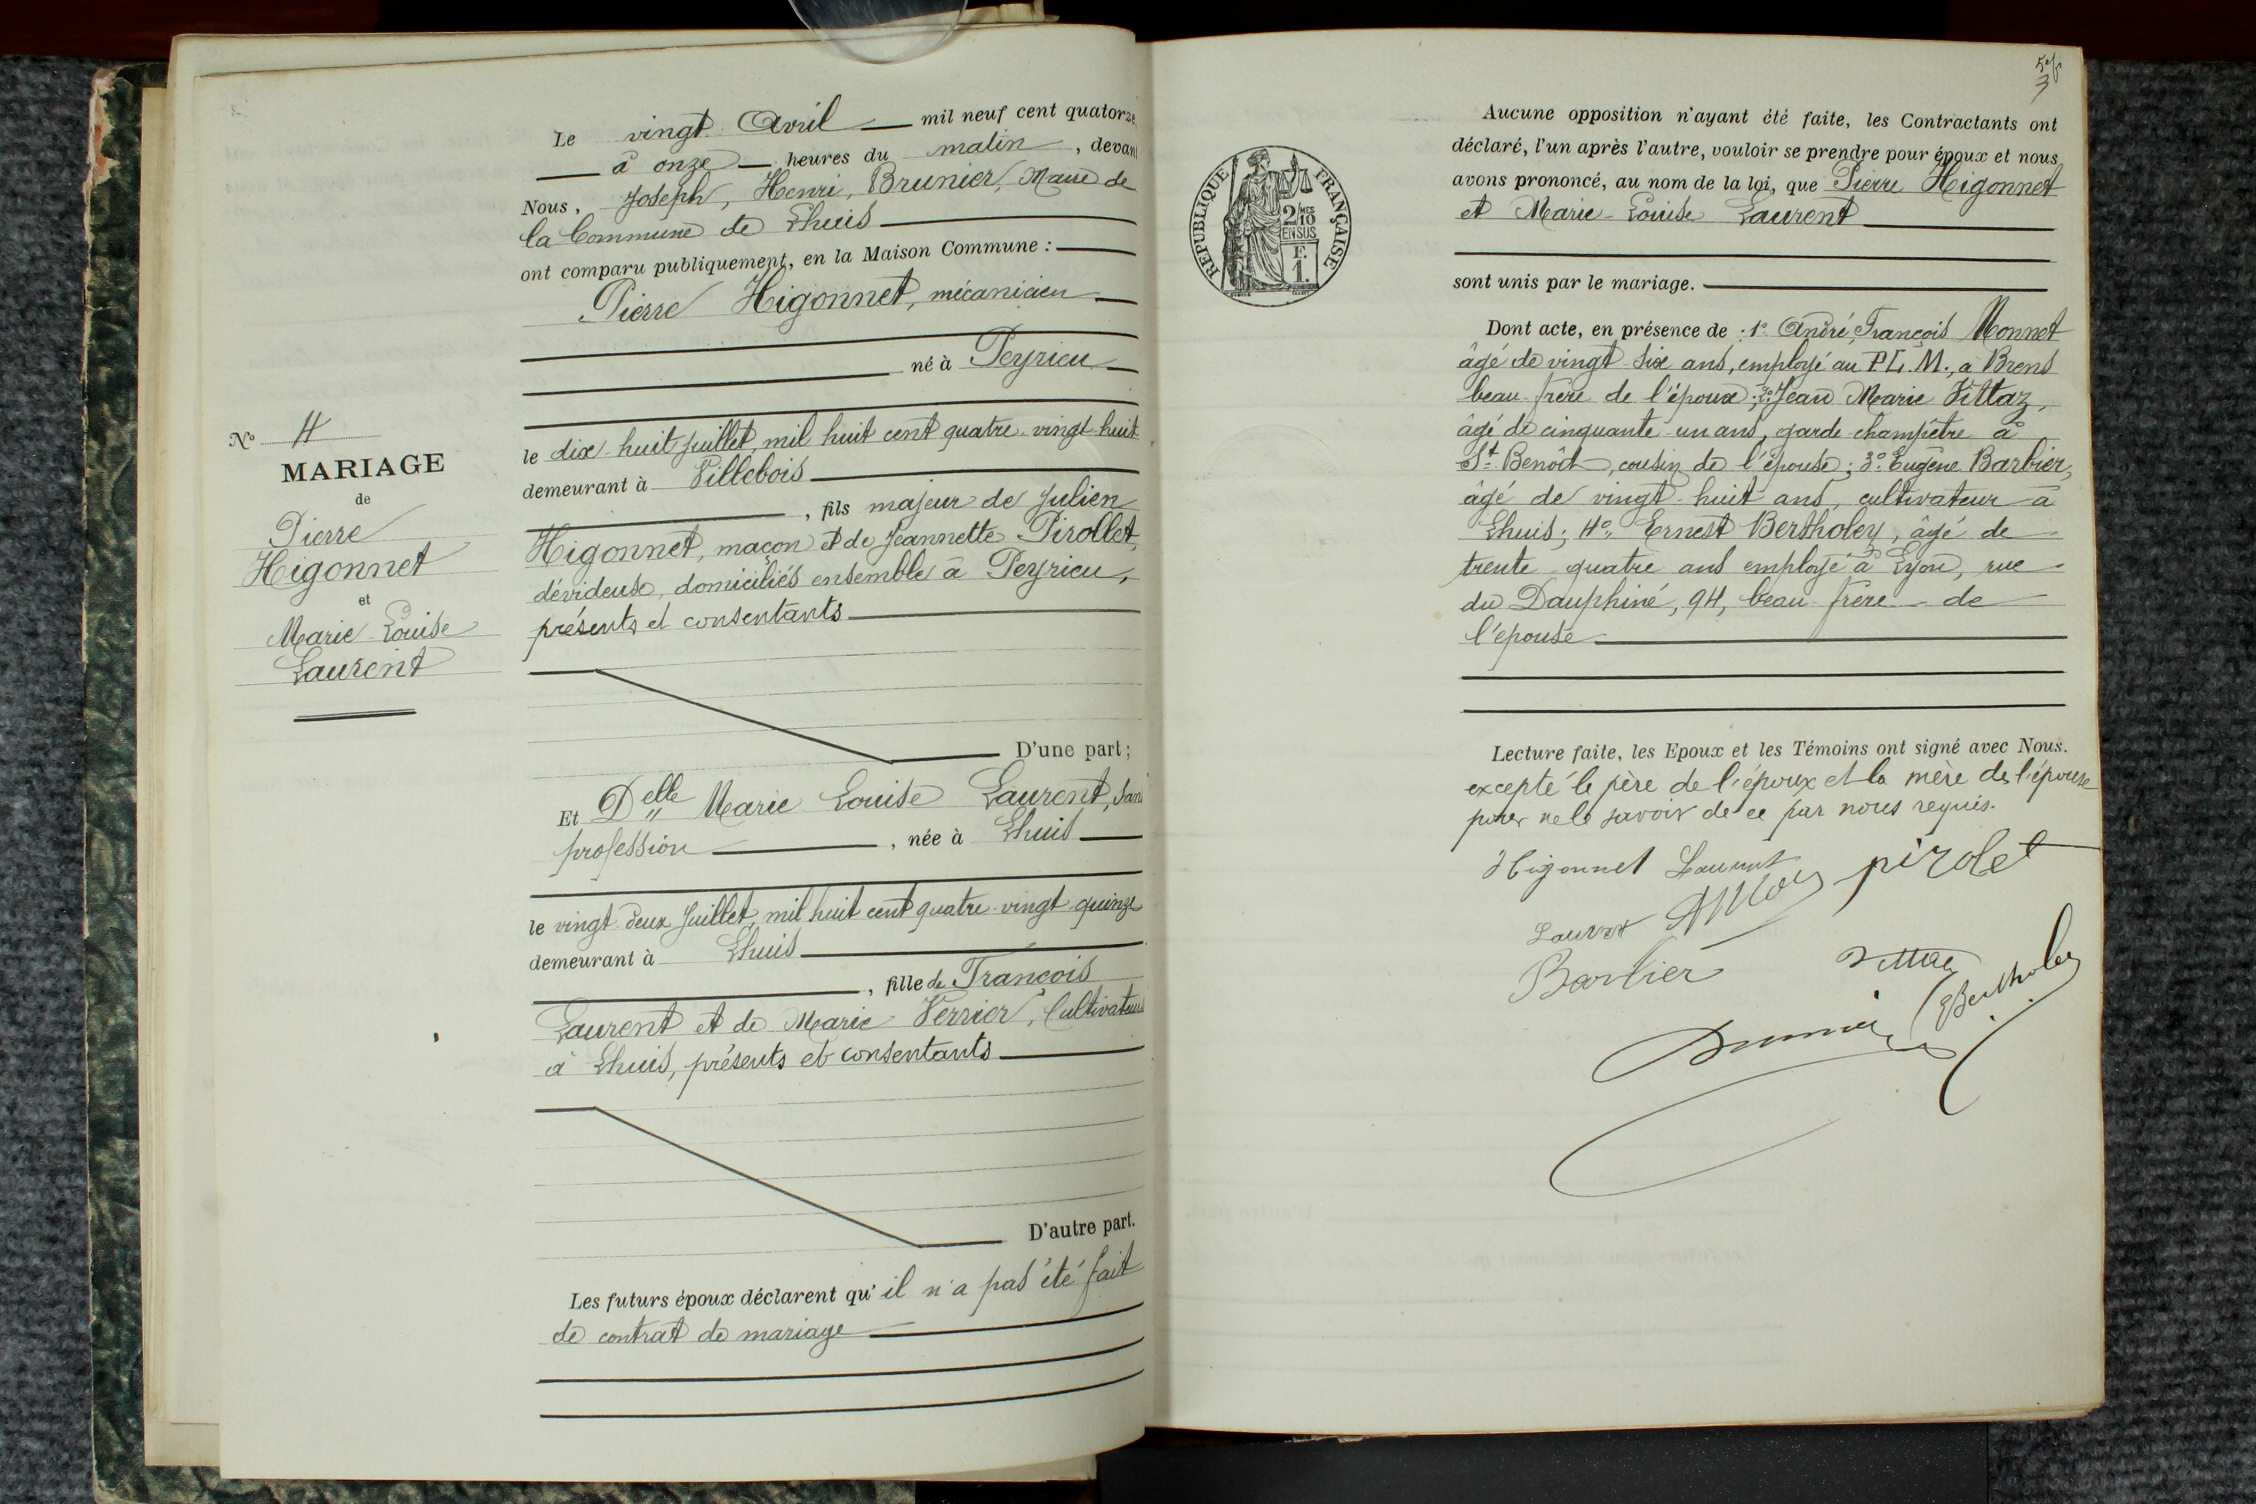 Le vingt Avril mil neuf cent quatorze
à onze heures du matin, devant
Nous, Joseph, Henri, Brunier, Maire de
la Commune de Lhuis
ont comparu publiquement, en la Maison Commune :
Pierre Higonnet, mécanicien
né à Peyrieu
le dix-huit Juillet, mil huit cent quatre-vingt-huit
demeurant à Villebois
, fils majeur de Julien
Higonnet, maçon et de Jeannette Pirollet,
dévideuse, domiciliés ensemble à Peyrieu,
présents et consentants
D'une part;
Nº 4
MARIAGE
de
Pierre
Higonnet
et
Marie-Louise
Laurent
Et Delle Marie Louise Laurent, sans
profession, née à Lhuis
le vingt-deux Juillet, mil huit cent quatre-vingt-quinze
demeurant à Lhuis
, fille de François
Laurent et de Marie Verrier, Cultivateurs
à Lhuis, présents et consentants
D'autre part.
Les futurs époux déclarent qu'il n'a pas été fait
de contrat de mariage
REPUBLIQUE FRANÇAISE
2/10 MES
EN SUS
F.
1.
Aucune opposition n'ayant été faite, les Contractants ont
déclaré, l'un après l'autre, vouloir se prendre pour époux et nous
avons prononcé, au nom de la loi, que Pierre Higonnet
et Marie-Louise Laurent
sont unis par le mariage.
Dont acte, en présence de : 1º André, François Monnet
âgé de vingt-six ans, employé au P.L.M., à Brens
beau-frère de l'époux ; 2º Jean Marie Vittaz,
âgé de cinquante-un ans, garde champêtre à
St Benoît, cousin de l'épouse ; 3º Eugène Barbier,
âgé de vingt-huit ans, cultivateur à
Lhuis ; 4º Ernest Bertholey, âgé de
trente-quatre ans employé à Lyon, rue
du Dauphiné, 94, beau-frère de
l'épouse
Lecture faite, les Epoux et les Témoins ont signé avec Nous.
excepté le père de l'époux et la mère de l'épouse
pour ne le savoir de ce par nous requis.
Higonnet Laurent
pirolet
Laurent
Barbier
Vittaz
Bertholey
Brunier